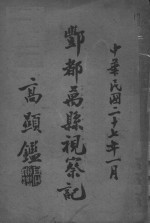 中華民國二十五年一月
酆都萬縣視察記
高顯鑑